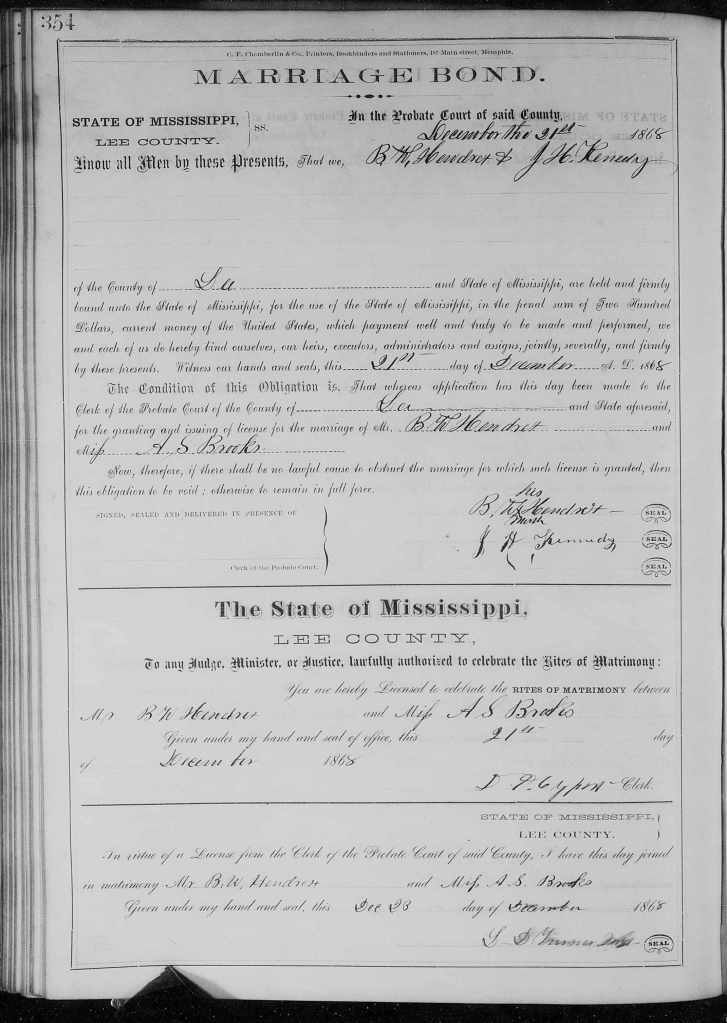 354
C. F. Chamberlin & Co., Printers, Bookbinders and Stationers, 197 Main street, Memphis.
MARRIAGE BOND.
STATE OF MISSISSIPPI, LEE COUNTY. } SS. In the Probate Court of said County,
December the 21st 1868
Know all Men by these Presents, That we, B. W. Hendrex & J. H. Kenedy
of the County of Lee and State of Mississippi, are held and firmly
bound unto the State of Mississippi, for the use of the State of Mississippi, in the penal sum of Two Hundred
Dollars, current money of the United States, which payment well and truly to be made and performed, we
and each of us do hereby bind ourselves, our heirs, executors, administrators and assigns, jointly, severally, and firmly
by these presents. Witness our hands and seals, this 21st day of December A. D. 1868
The Condition of this Obligation is, That whereas application has this day been made to the
Clerk of the Probate Court of the County of Lee and State aforesaid,
for the granting and issuing of license for the marriage of Mr. B. W Hendrex and
Miss A. S Brooks
Now, therefore, if there shall be no lawful cause to obstruct the marriage for which such license is granted, then
this obligation to be void; otherwise to remain in full force.
his
SIGNED, SEALED AND DELIVERED IN PRESENCE OF B. W X Hendrex SEAL
mark
J H Kennedy SEAL
Clerk of the Probate Court. SEAL
The State of Mississippi,
LEE COUNTY,
To any Judge, Minister, or Justice, lawfully authorized to celebrate the Rites of Matrimony:
You are hereby Licensed to celebrate the RITES OF MATRIMONY between
Mr B W Hendrex and Miss A S Brooks
Given under my hand and seal of office, this 21st day
of December 1868
Clerk.
STATE OF MISSISSIPPI,
LEE COUNTY.
In virtue of a License from the Clerk of the Probate Court of said County, I have this day joined
in matrimony Mr B. W. Hendrex and Miss A. S. Brooks
Given under my hand and seal, this Dec 23 day of December 1868
SEAL